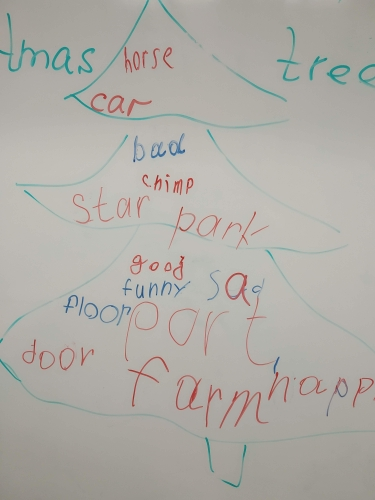 tmas horse tree
car
bad
chimp
star park
good
funny sad
floor port
door farm happ